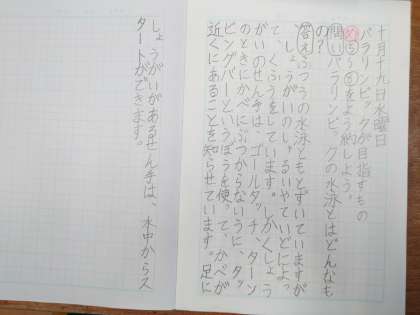 十月十九日水曜日
パラリンピックが目指すもの
め⑤〜⑥をよう約しよう。
問いパラリンピックの水泳とはどんなも
の?
答えふつうの水泳ともとずいていますが
、しょうがいのしゅるいやていどによっ
て、くふうをしています。しかくしょう
がいのせん手は、ゴールタッチ、ターン
のときにかべにぶつからないうに、タッ
ピングバーというぼうを使って、かべが
近くにあることを知らせています。足に
しょうがいがあるせん手は、水中からス
タートができます。